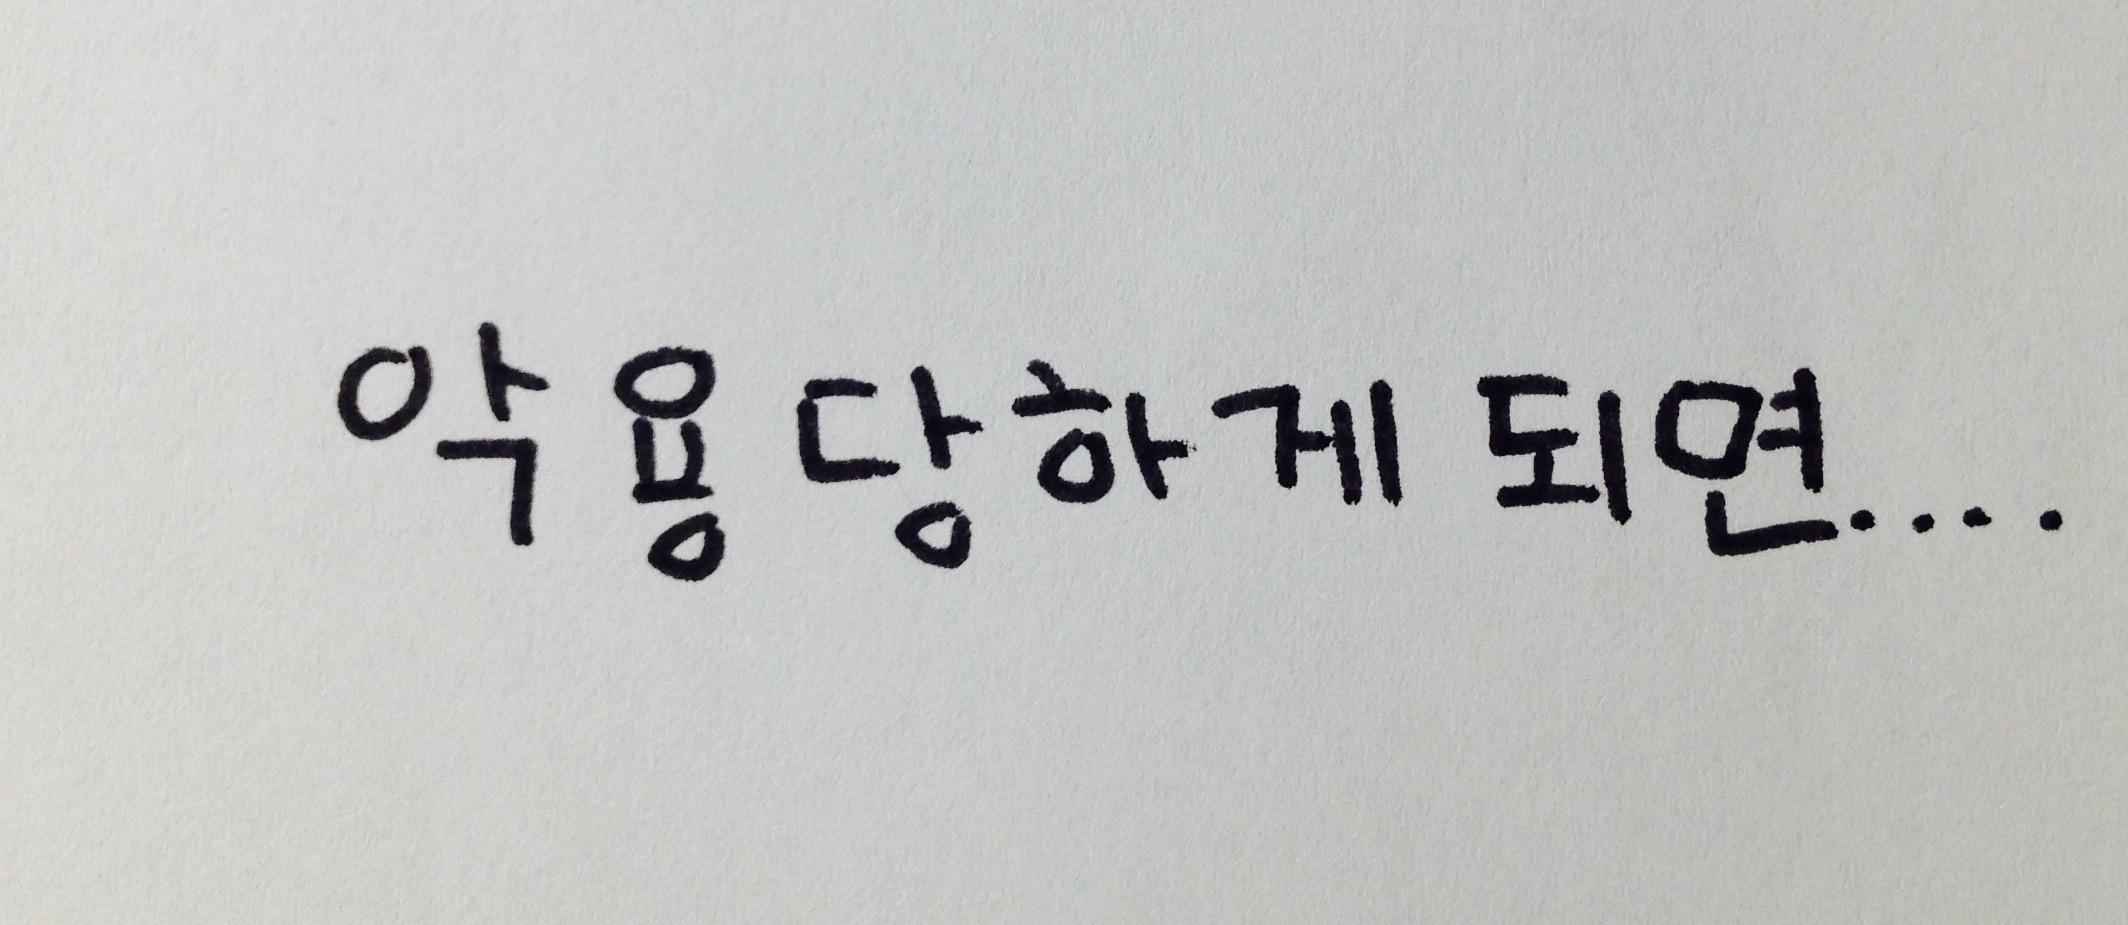 악용당하게 되면....